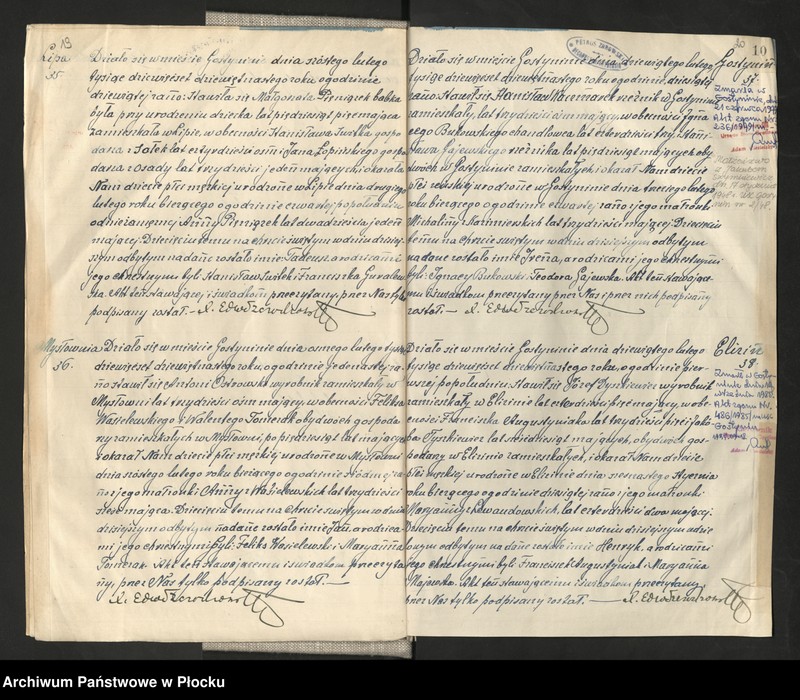 19
Lipa
35.
Działo się w mieście Gostyninie dnia szóstego lutego
tysiąc dziewięćset dziewiętnastego roku o godzinie
dziewiątej rano: Stawiła się Małgorzata Pieniążek babka
była przy urodzeniu dziecka lat pięćdziesiąt pięć mająca
zamieszkała w Lipie, w obecności Stanisława
dana z lat czterdzieści osm i Jana Łopińskiego gospo
dana z Osady lat trzydzieści jeden mających i okazała
Nam dziecię płci męskiej urodzone w Lipie dnia drugiego
lutego roku bieżącego o godzinie czwartej po południu
od niezamężnej Anny Pieniążek lat dwadzieścia jeden
mającej. Dziecięciu temu na chrzcie świętym w dniu dzisiej-
szym odbytym nadane zostało imię Tadeusz, a rodzicami
jego chrzestnymi byli: Stanisław i Franciszka
Akt ten stawającej i świadkom przeczytany, przez Nas tylko
podpisany został. —
Mysłownia
36.
Działo się w mieście Gostyninie dnia osmego lutego tysiąc
dziewięćset dziewiętnastego roku, o godzinie jedenastej ra-
no Stawił się Antoni Ostrowski wyrobnik zamieszkały w
Mysłowni lat trzydzieści osm mający, w obecności Feliksa
Wasielewskiego i Walentego Tomczak obydwóch gospoda
rzy zamieszkałych w Mysłowni, po pięćdziesiąt lat mających
i okazał Nam dziecię płci męskiej urodzone w Mysłowni
dnia szóstego lutego roku bieżącego o godzinie siódmej ra-
no z jego małżonki Anny z Wasielewskich lat trzydzieści
mającej. Dziecięciu temu na chrzcie świętym w dniu
dzisiejszym odbytym nadane zostało imię Jan, a rodzica-
mi jego chrzestnymi byli: Feliks Wasielewski i Maryanna
Tomczak. Akt ten stawającemu i świadkom przeczyta
ny, przez Nas tylko podpisany został. —
20
10
Gostynin
37.
Działo się w mieście Gostyninie dnia dziewiątego lutego
tysiąc dziewięćset dziewiętnastego roku o godzinie dziewiątej
rano: Stawił się Stanisław Kaczmarek rzeźnik w Gostyninie
zamieszkały, lat trzydzieści osm mający, w obecności Igna
cego Bukowskiego handlowca lat czterdzieści trzy i Stani-
sława Gajewskiego rzeźnika lat pięćdziesiąt mających oby
dwóch w Gostyninie zamieszkałych i okazał Nam dziecię
płci żeńskiej urodzone w Gostyninie dnia trzeciego lutego
roku bieżącego o godzinie czwartej rano z jego małżonki
Michaliny z Kaźmierskich lat trzydzieści mającej. Dziecięciu
temu na chrzcie świętym w dniu dzisiejszym odbytym
nadane zostało imię Irena, a rodzicami jego chrzestnymi
byli: Ignacy Bukowski i Teodora Gajewska. Akt ten stawają-
cemu i świadkom przeczytany, przez Nas i przez nich podpisany
został. —
Zmarła w
Gostyninie, dn.
21 czerwca
Akt zgonu Nr.
Elizin
38.
Działo się w mieście Gostyninie dnia dziewiątego lutego
tysiąc dziewięćset dziewiętnastego roku, o godzinie pier-
wszej po południu: Stawił się Józef Dyśkiewicz wyrobnik
zamieszkały w Elizinie lat czterdzieści pięć mający, w obe-
cności Franciszka Augustyniaka lat trzydzieści pięć i Jakó
ba lat siedmdziesiąt mających, obydwóch gos-
podarzy w Elizinie zamieszkałych, i okazał Nam dziecię
płci męskiej urodzone w Elizinie dnia szesnastego stycznia
roku bieżącego o godzinie dziesiątej rano z jego małżonki
Maryanny z Lewandowskich, lat czterdzieści dwa mającej.
Dziecięciu temu na chrzcie świętym w dniu dzisiejszym
odbytym nadane zostało imię Henryk, a rodzicami
jego chrzestnymi byli Franciszek Augustyniak i Maryanna
Majewska. Akt ten stawającemu i świadkom przeczytany,
przez Nas tylko podpisany został. —
Zmarł w Gosty-
ninie dnia
września 1985r.
Akt zgonu Nr.
486/1985/
Gostynin
Archiwum Państwowe w Płocku